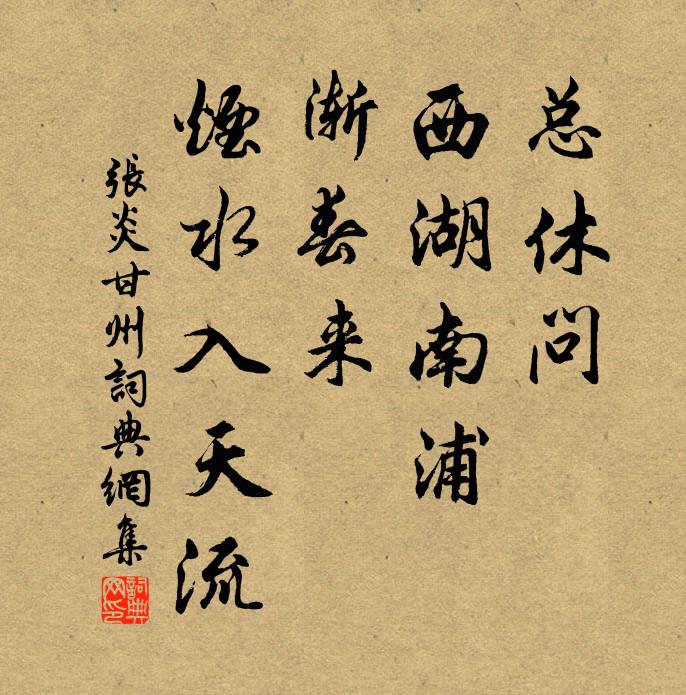 总休问
西湖南浦
渐春来
烟水入天流
張炎甘州詞典網集
詞典网印